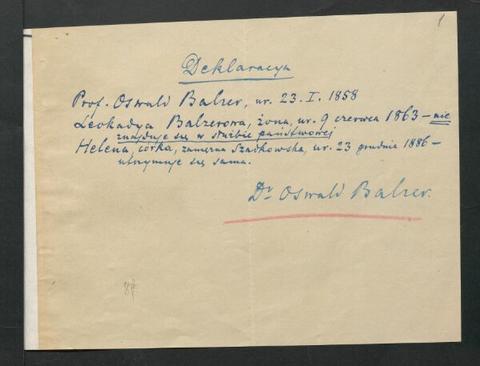 1
Deklaracya
Prof. Oswald Balzer, ur. 23. I. 1858
Leokadya Balzerowa, żona, ur. 9 czerwca 1863 – nie
znajduje się w służbie państwowej
Helena, córka, zamężna Szajkowska, ur. 23 grudnia 1886 –
utrzymuje się sama.
Dr Oswald Balzer.